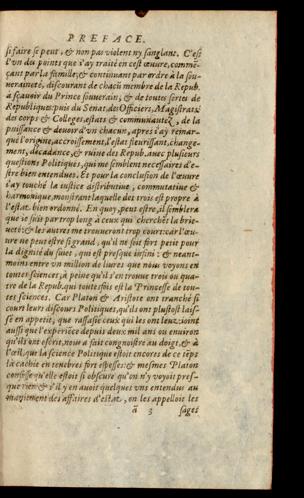 PREFACE.
si faire se peut, & non pas violent ny sanglant. C'est
l'vn des points que i'ay traité en cest œuure, commē-
çant par la famille, & continuant par ordre à la sou-
ueraineté, discourant de chacū membre de la Repub.
à sçauoir du Prince souuerain, & de toutes sortes de
Republiques: puis du Senat, des Officiers, Magistrats,
des corps & Colleges, estats & communautez, de la
puissance & deuoir d'vn chacun, apres i'ay remar-
qué l'origine, accroissement, l'estat fleurissant, change-
ment, decadance, & ruine des Repub. auec plusieurs
questions Politiques, qui me semblent necessaires d'e-
stre bien entendues. Et pour la conclusion de l'œuure
i'ay touché la iustice distributiue, commutatiue &
harmonique, monstrant laquelle des trois est propre à
l'estat bien ordonné. En quoy, peut estre, il semblera
que ie suis par trop long à ceux qui cherchēt la brie-
ueté: & les autres me trouueront trop court: car l'œu-
ure ne peut estre si grand, qu'il ne soit fort petit pour
la dignité du suiet, qui est presque infini: & neant-
moins entre vn million de liures que nous voyons en
toutes sciences, à peine qu'il s'en trouue trois ou qua-
tre de la Repub. qui toutesfois est la Princesse de tou-
tes sciences. Car Platon & Aristote ont tranché si
court leurs discours Politiques, qu'ils ont plustost lais-
sé en appetit, que rassasié ceux qui les ont leuz. ioint
aussi que l'experiēce depuis deux mil ans ou enuiron
qu'ils ont escrit, nous a fait cognoistre au doigt, & à
l'œil, que la science Politique estoit encores de ce tēps
là cachée en tenebres fort espesses: & mesmes Platon
confesse qu'elle estoit si obscure qu'on n'y voyoit pres-
que rien: & s'il y en auoit quelques vns entendus au
maniement des affaires d'estat, on les appelloit les
ã 3 sages